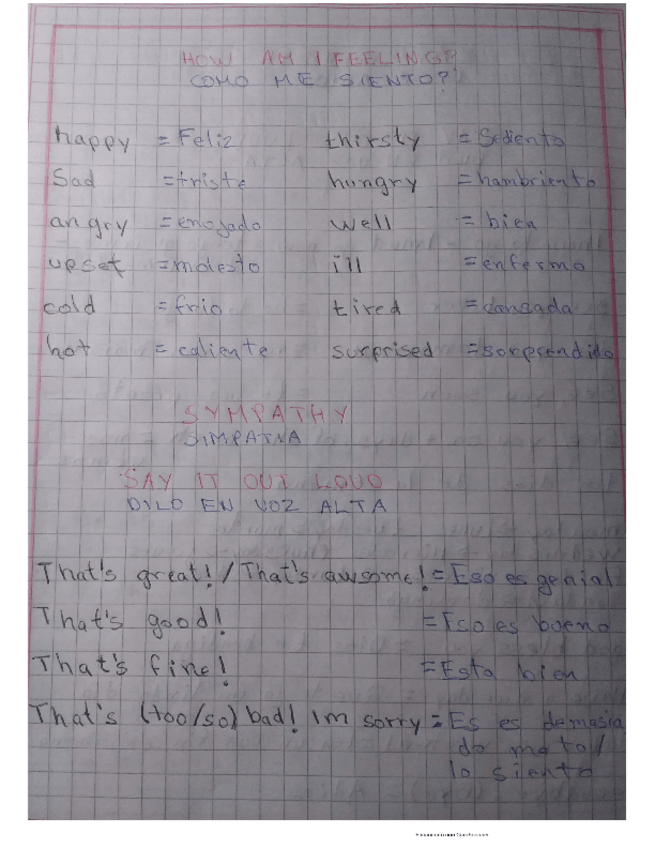 HOW AM I FEELING?
COMO ME SIENTO?
happy = Feliz thirsty = Sediento
Sad = triste hungry = hambriento
angry = enojado well = bien
upset = molesto ill = enfermo
cold = frio tired = cansada
hot = caliente surprised = sorprendido
SYMPATHY
SIMPATIA
SAY IT OUT LOUD
DILO EN VOZ ALTA
That's great! / That's awsome! = Eso es genial
That's good! = Eso es bueno
That's fine! = Esta bien
That's (too/so) bad! Im sorry = Es es demasia
do malo/
lo siento